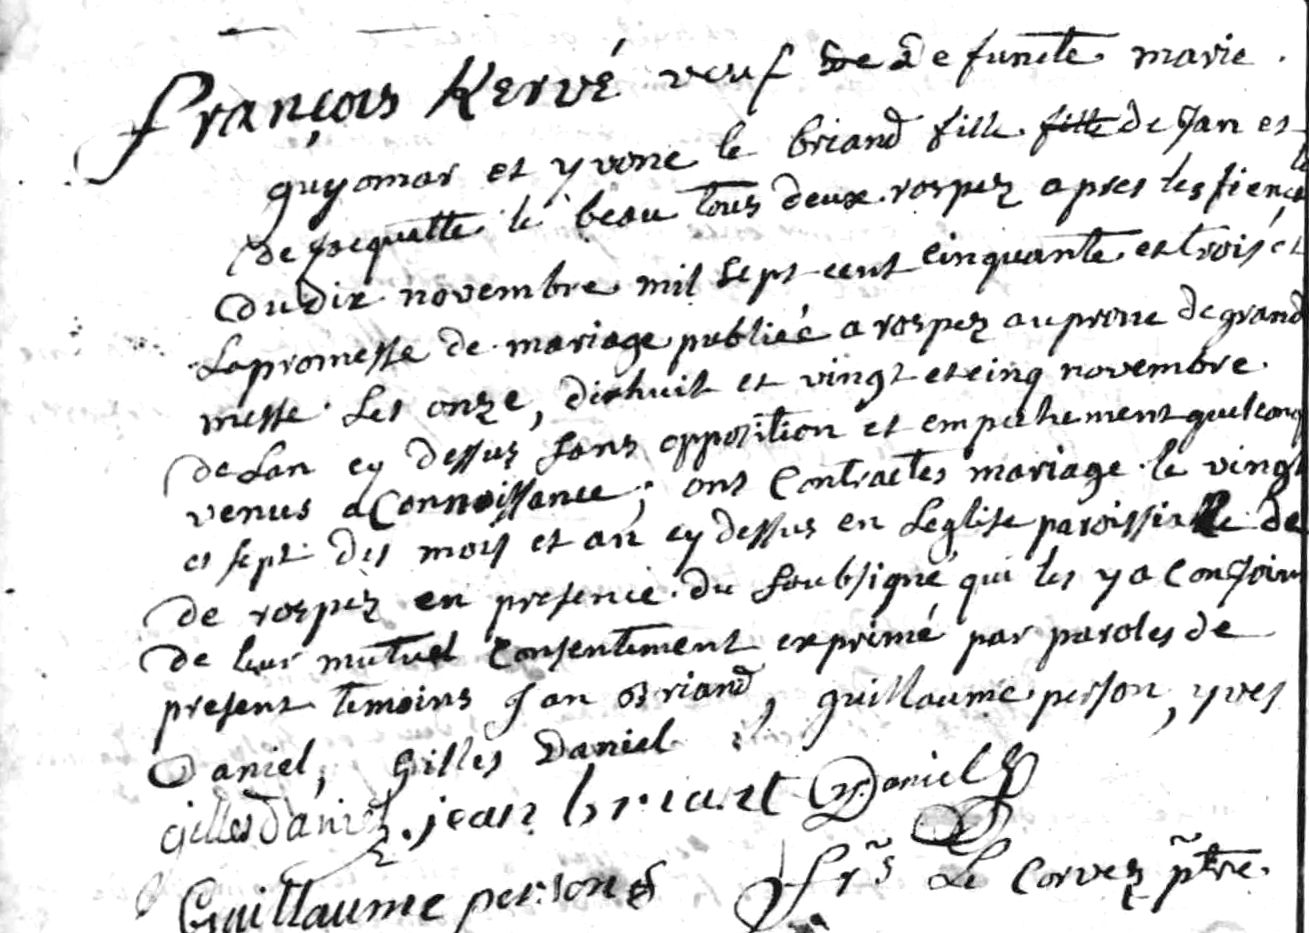 françois Kervé veuf de defuncte marie
guyomar et yvone le briand fille fille de Jan et
de Jacquette le beau tous deux rospez apres les fiences
du dix novembre mil sept cent cinquante et trois et
La promesse de mariage publiéé a rospez au prone de grand
messe les onze, dixhuit et vingt et cinq novembre
de Lan cy dessus sans opposition et empechement quelconq
venus a Connoissance; ont Contractes mariage le vingt
et sept des mois et an cy dessus en Leglise paroissialle de
de rospez en presence du soubsigné qui les y a Conjoint
de leur mutuel Consentement exprimé par paroles de
present temoins Jan Briand, guillaume person, yves
Daniel, Gilles Daniel
gilles daniel jean briant Y: Daniel
Guillaume person frs Le Corvez ptre.